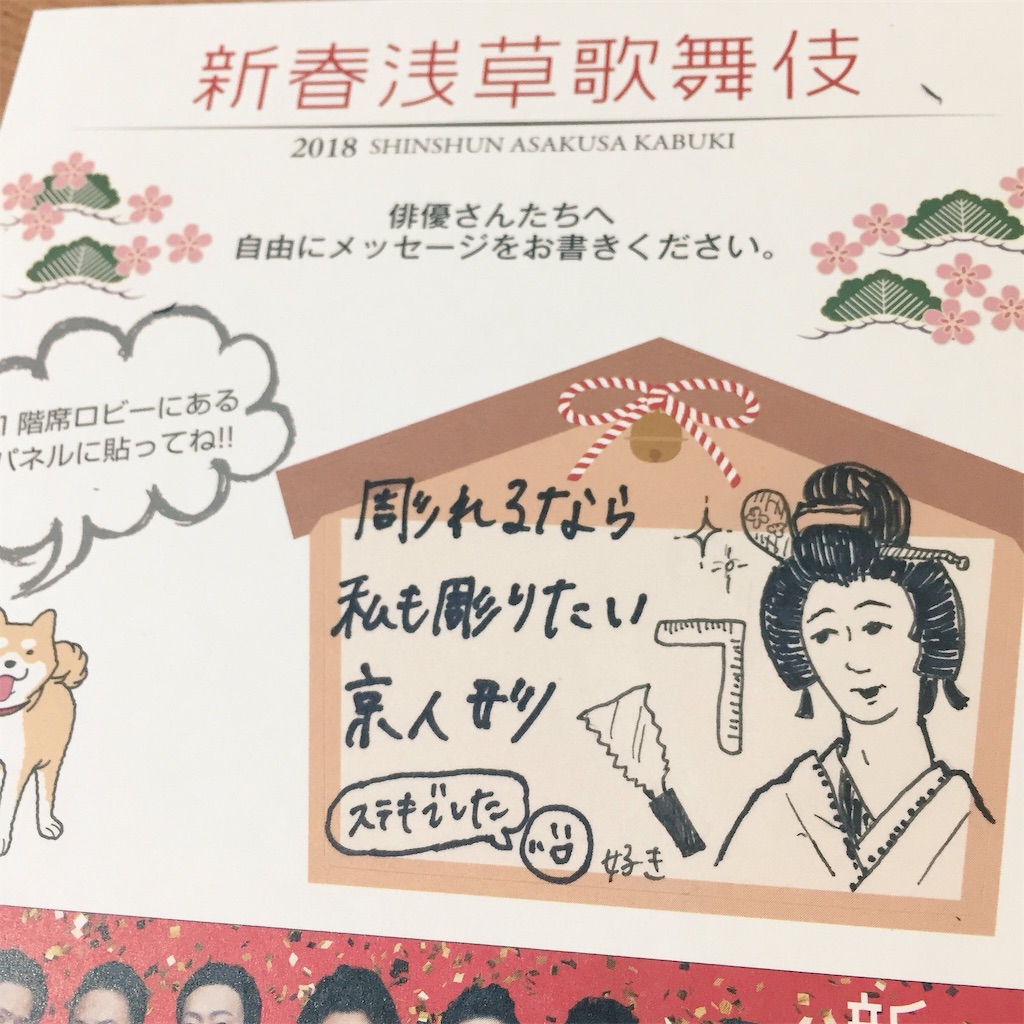 新春浅草歌舞伎
2018 SHINSHUN ASAKUSA KABUKI
俳優さんたちへ
自由にメッセージをお書きください。
1階席ロビーにある
パネルに貼ってね!!
彫れるなら
私も彫りたい
京人形
ステキでした
好き
新